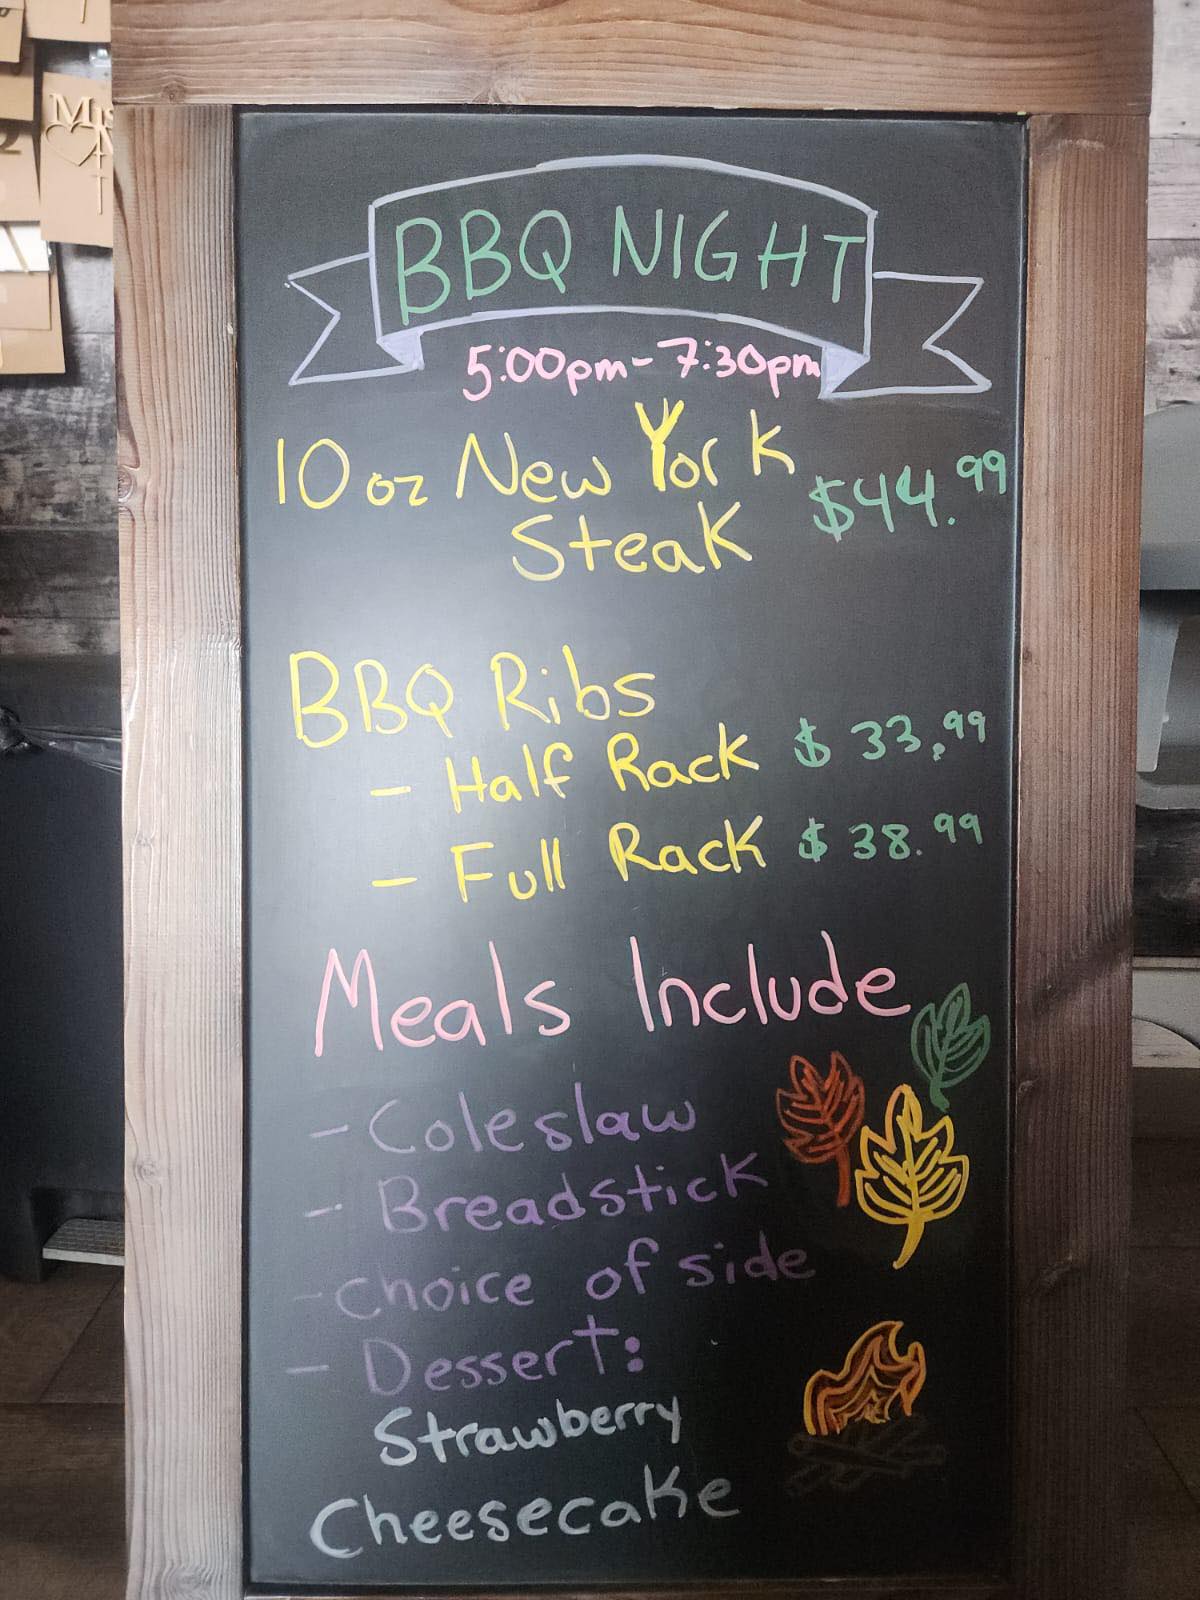 BBQ NIGHT
5:00pm - 7:30pm
10 oz New York
Steak $44.99
BBQ Ribs
- Half Rack $33.99
- Full Rack $38.99
Meals Include
- Coleslaw
- Breadstick
- choice of side
- Dessert:
Strawberry
Cheesecake